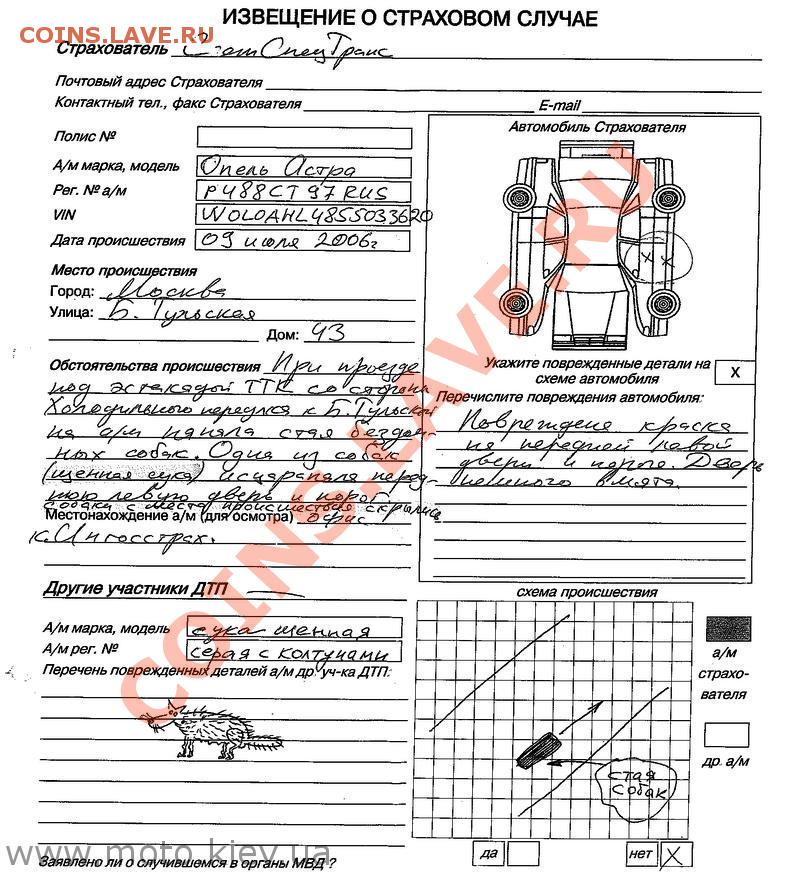 ИЗВЕЩЕНИЕ О СТРАХОВОМ СЛУЧАЕ
COINS.LAVE.RU
Страхователь СпецТранс
Почтовый адрес Страхователя
Контактный тел., факс Страхователя E-mail
Полис №
А/м марка, модель Опель Астра
Рег. № а/м Р488СТ97RUS
VIN W0L0AHL4855033620
Дата происшествия 09 июля 2006г
Место происшествия
Город: Москва
Улица: Б. Тульская
Дом: 43
Обстоятельства происшествия При проезде
под эстакадой ТТК со стороны
Холодильного переулка к Б. Тульской
на а/м напала стая бездом-
ных собак. Одна из собак
(щенная сука) исцарапала перед-
нюю левую дверь и порог.
собаки с места происшествия скрылись
Местонахождение а/м (для осмотра) офис
к. Ингосстрах.
Автомобиль Страхователя
X X
Укажите поврежденные детали на
схеме автомобиля
X
Перечислите повреждения автомобиля:
Повреждена краска
на передней левой
двери и пороге. Дверь
немного вмята.
Другие участники ДТП —
А/м марка, модель сука щенная
А/м рег. № серая с колтунами
Перечень поврежденных деталей а/м др. уч-ка ДТП:
схема происшествия
стая
собак
а/м
страхо-
вателя
др. а/м
COINS.LAVE.RU
www.moto.kiev.ua
Заявлено ли о случившемся в органы МВД ? да нет X